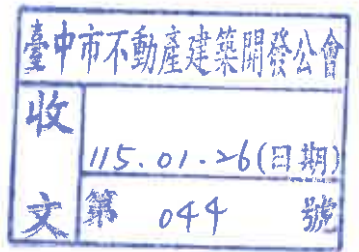 臺中市不動產建築開發公會
收文
115.01.26(日期)
第 044 號